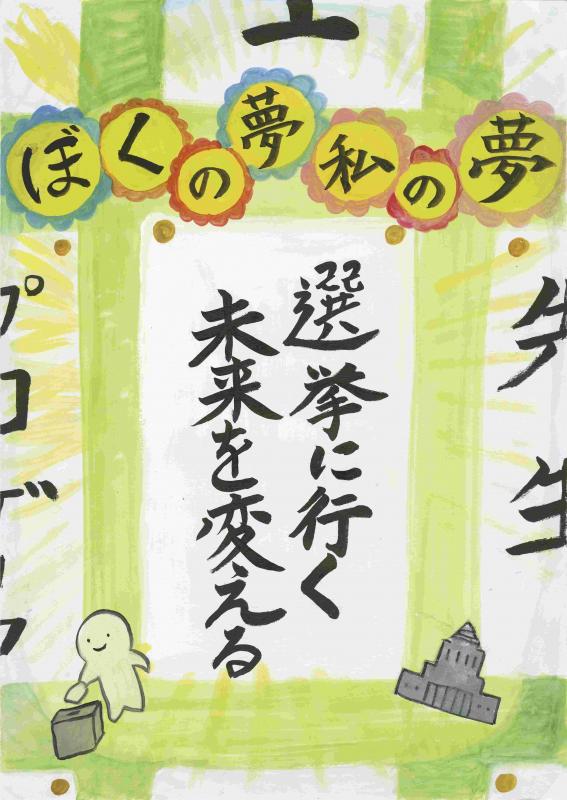 ぼくの夢私の夢
先生
選挙に行く
未来を変える